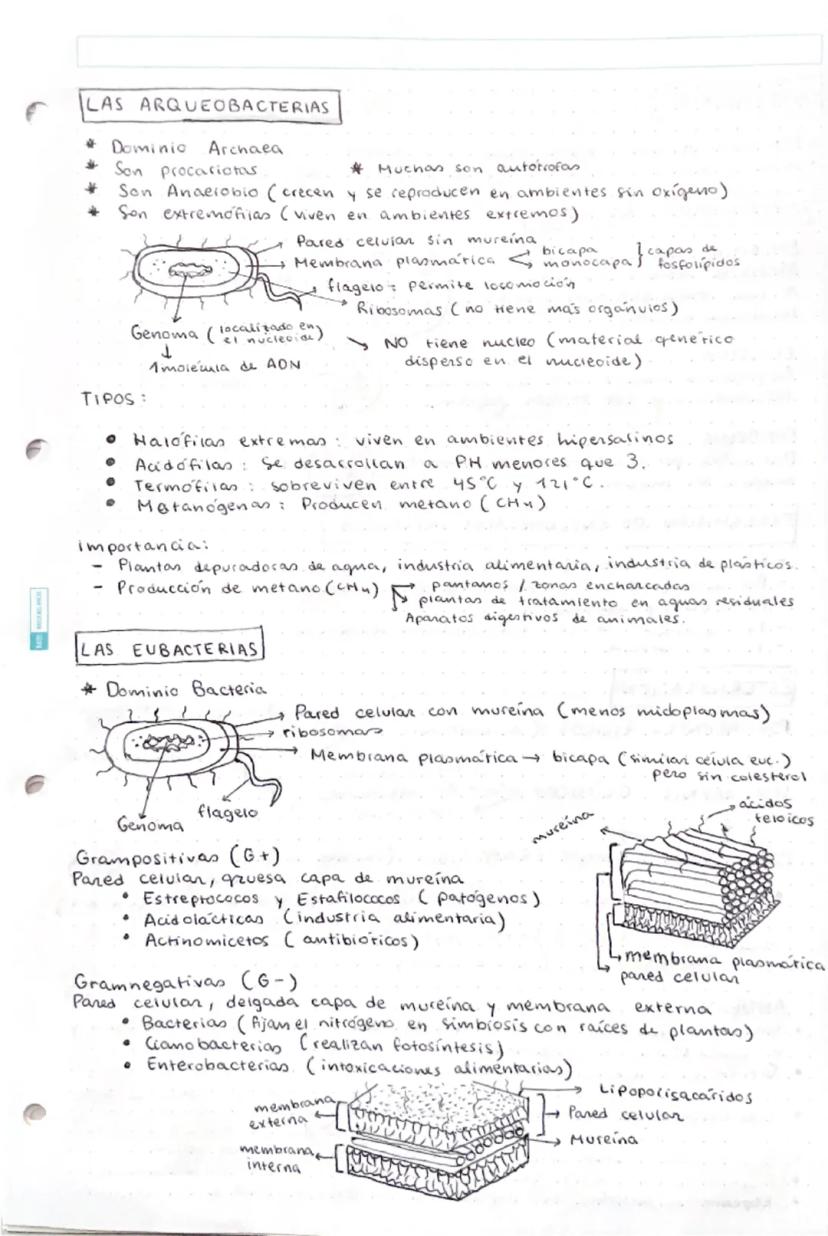 LAS ARQUEOBACTERIAS
* Dominio Archaea
* Son procariotas * Muchas son autótrofas
* Son Anaerobio (crecen y se reproducen en ambientes sin oxígeno)
* Son extremófilas (viven en ambientes extremos)
Pared celular sin mureína
Membrana plasmática bicapa monocapa } capas de fosfolípidos
flagelo: Permite locomoción
Ribosomas (no tiene más orgánulos)
Genoma (localizado en el nucleoide)
1 molécula de ADN
NO tiene nucleo (material genético
disperso en el nucleoide)
TIPOS:
• Halófilas extremas: viven en ambientes hipersalinos
• Acidófilas: Se desarrollan a PH menores que 3.
• Termófilas: sobreviven entre 45°C y 121°C.
• Metanógenas: Producen metano (CH4)
importancia:
- Plantas depuradoras de agua, industria alimentaria, industria de plásticos.
- Producción de metano (CH4) pantanos / zonas encharcadas
plantas de tratamiento en aguas residuales
Aparatos digestivos de animales.
LAS EUBACTERIAS
* Dominio Bacteria
Pared celular con mureína (menos midoplasmas)
ribosomas
Membrana plasmática → bicapa (similar célula euc.)
pero sin colesterol
flagelo
Genoma
mureína
ácidos
teloicos
Grampositivas (G+)
Pared celular, gruesa capa de mureína
• Estreptococos y Estafilococos (patógenos)
• Acidolácticas (industria alimentaria)
• Actinomicetos (antibióticos)
membrana plasmática
pared celular
Gramnegativas (G-)
Pared celular, delgada capa de mureína y membrana externa
• Bacterias (fijan el nitrógeno en simbiosis con raíces de plantas)
• Cianobacterias (realizan fotosíntesis)
• Enterobacterias (intoxicaciones alimentarias)
Lipoporisacáridos
membrana
externa
Pared celular
Mureína
membrana
interna